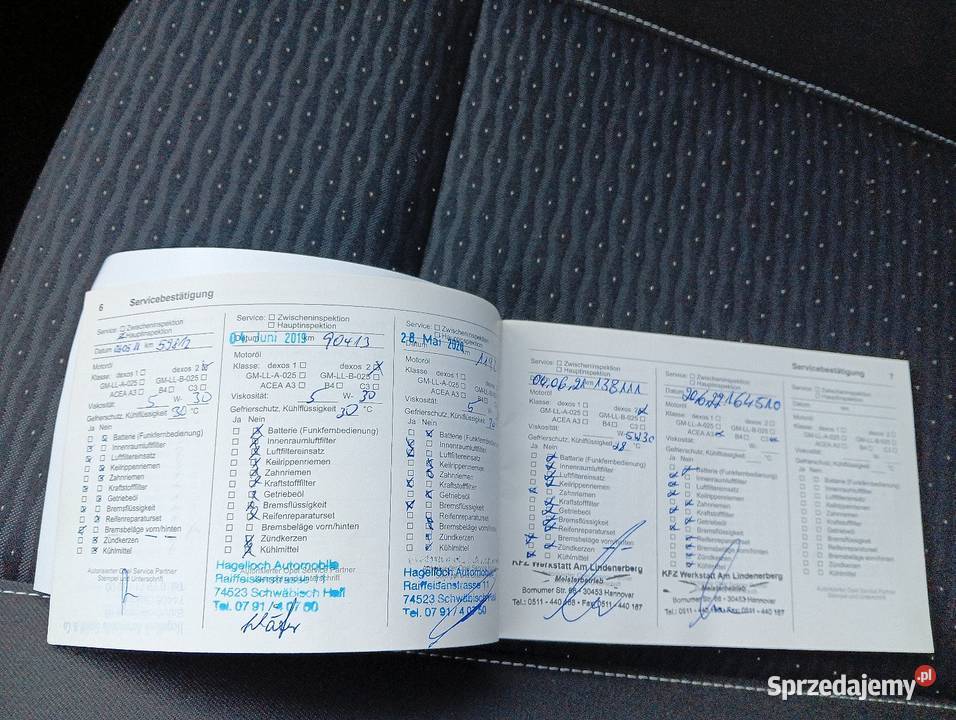 6 Servicebestätigung
Service: ☐ Zwischeninspektion
Hauptinspektion
Datum km
Motoröl
Klasse: dexos 1 ☐ dexos 2
GM-LL-A-025 ☐ GM-LL-B-025 ☐
ACEA A3 ☐ B4 ☐ C3 ☐
Viskosität: 5 W- 30
Gefrierschutz, Kühlflüssigkeit 30 °C
Ja Nein
Batterie (Funkfernbedienung)
Innenraumluftfilter
Luftfiltereinsatz
Keilrippenriemen
Zahnriemen
Kraftstofffilter
Getriebeöl
Bremsflüssigkeit
Reifenreparaturset
Bremsbeläge vorn/hinten
Zündkerzen
Kühlmittel
Autorisierter Opel Service Partner
Stempel und Unterschrift
Service: ☐ Zwischeninspektion
☐ Hauptinspektion
04. Juni 2019 km 90413
Motoröl
Klasse: dexos 1 ☐ dexos 2
GM-LL-A-025 ☐ GM-LL-B-025 ☐
ACEA A3 ☐ B4 ☐ C3 ☐
Viskosität: 5 W- 30
Gefrierschutz, Kühlflüssigkeit 30 °C
Ja Nein
Batterie (Funkfernbedienung)
Innenraumluftfilter
Luftfiltereinsatz
Keilrippenriemen
Zahnriemen
Kraftstofffilter
Getriebeöl
Bremsflüssigkeit
Reifenreparaturset
Bremsbeläge vorn/hinten
Zündkerzen
Kühlmittel
Hagelloch Automobile
Raiffeisenstrasse 11
74523 Schwäbisch Hall
Tel. 07 91 / 4 07 50
Service: ☐ Zwischeninspektion
☐ Hauptinspektion
28. Mai 2020
Motoröl
Klasse: dexos 1 ☐
GM-LL-A-025 ☐
ACEA A3 ☐
Viskosität: 5
Gefrierschutz, Kühlflüssigkeit
Ja Nein
Batterie (Funkfernbedienung)
Innenraumluftfilter
Luftfiltereinsatz
Keilrippenriemen
Zahnriemen
Kraftstofffilter
Getriebeöl
Bremsflüssigkeit
Reifenreparaturset
Bremsbeläge vorn/hinten
Zündkerzen
Kühlmittel
Hagelloch Automobile
Raiffeisenstrasse 11
74523 Schwäbisch Hall
Tel. 07 91 / 4 07 50
Service: ☐ Zwischeninspektion
☐ Hauptinspektion
06.21 138111
Motoröl
Klasse: dexos 1 ☐ dexos 2
GM-LL-A-025 ☐ GM-LL-B-025 ☐
ACEA A3 ☐ B4 ☐ C3 ☐
Viskosität: 5W30
Gefrierschutz, Kühlflüssigkeit °C
Ja Nein
Batterie (Funkfernbedienung)
Innenraumluftfilter
Luftfiltereinsatz
Keilrippenriemen
Zahnriemen
Kraftstofffilter
Getriebeöl
Bremsflüssigkeit
Reifenreparaturset
Bremsbeläge vorn/hinten
Zündkerzen
Kühlmittel
KFZ Werkstatt Am Lindenerberg
Meisterbetrieb
Bornumer Str. 98 • 30453 Hannover
Tel.: 0511 - 440 • Fax: 0511 - 440 187
Servicebestätigung 7
Service: ☐ Zwischeninspektion
☐ Hauptinspektion
Datum 164510
Motoröl
Klasse: dexos 1 ☐ dexos 2 ☐
GM-LL-A-025 ☐ GM-LL-B-025 ☐
ACEA A3 B4 ☐ C3
Viskosität: W-
Gefrierschutz, Kühlflüssigkeit °C
Ja Nein
Batterie (Funkfernbedienung)
Innenraumluftfilter
Luftfiltereinsatz
Keilrippenriemen
Zahnriemen
Kraftstofffilter
Getriebeöl
Bremsflüssigkeit
Reifenreparaturset
Bremsbeläge vorn/hinten
Zündkerzen
Kühlmittel
KFZ Werkstatt Am Lindenerberg
Meisterbetrieb
Bornumer Str. 98 • 30453 Hannover
Motoröl
Ja Nein
Batterie (Funkfernbedienung)
Innenraumluftfilter
Luftfiltereinsatz
Keilrippenriemen
Zahnriemen
Kraftstofffilter
Getriebeöl
Bremsflüssigkeit
Reifenreparaturset
Bremsbeläge vorn/hinten
Zündkerzen
Kühlmittel
Autorisierter Opel Service Partner
Stempel und Unterschrift
Sprzedajemy.pl